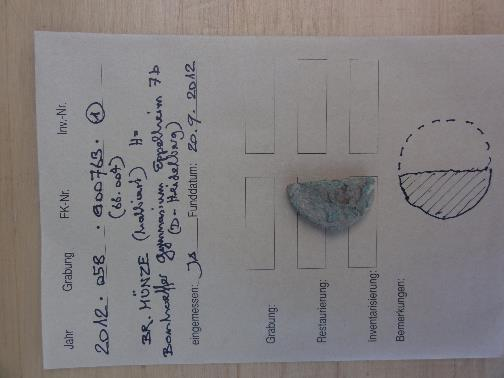 Jahr Grabung FK-Nr. Inv.-Nr.
2012 . 058 . 900763 . 1
(66.004)
BR. MÜNZE (halbiert) H=
Bonhoeffer Gymnasium Eppelheim 7b
(D-Heidelberg)
eingemessen: Ja Funddatum: 20.9.2012
Grabung:
Restaurierung:
Inventarisierung:
Bemerkungen: